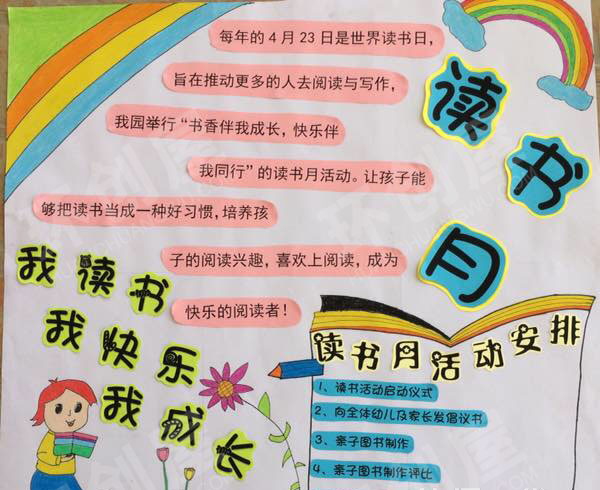 每年的4月23日是世界读书日，
旨在推动更多的人去阅读与写作，
我园举行“书香伴我成长，快乐伴
我同行”的读书月活动。让孩子能
够把读书当成一种好习惯，培养孩
子的阅读兴趣，喜欢上阅读，成为
快乐的阅读者！
读书月
我读书
我快乐
我成长
读书月活动安排
1、读书活动启动仪式
2、向全体幼儿及家长发倡议书
3、亲子图书制作
4、亲子图书制作评比